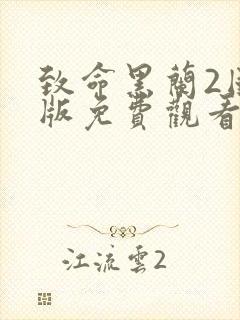 致命黑蘭2
版免費觀看
江流雲2